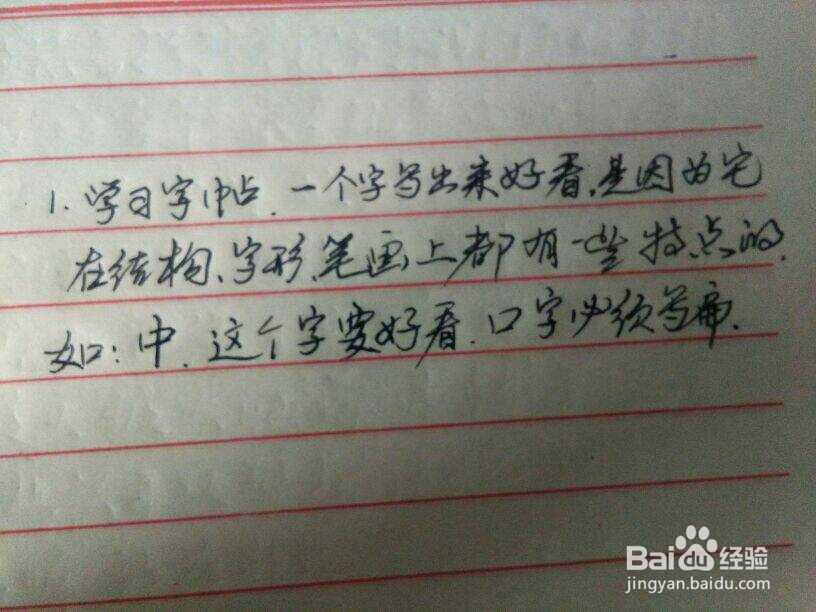 1. 学习字帖. 一个字写出来好看,是因为它
在结构、字形、笔画上都有一些特点的.
如:中. 这个字要好看. 口字必须写扁.
Bai du 经验
jingyan.baidu.com